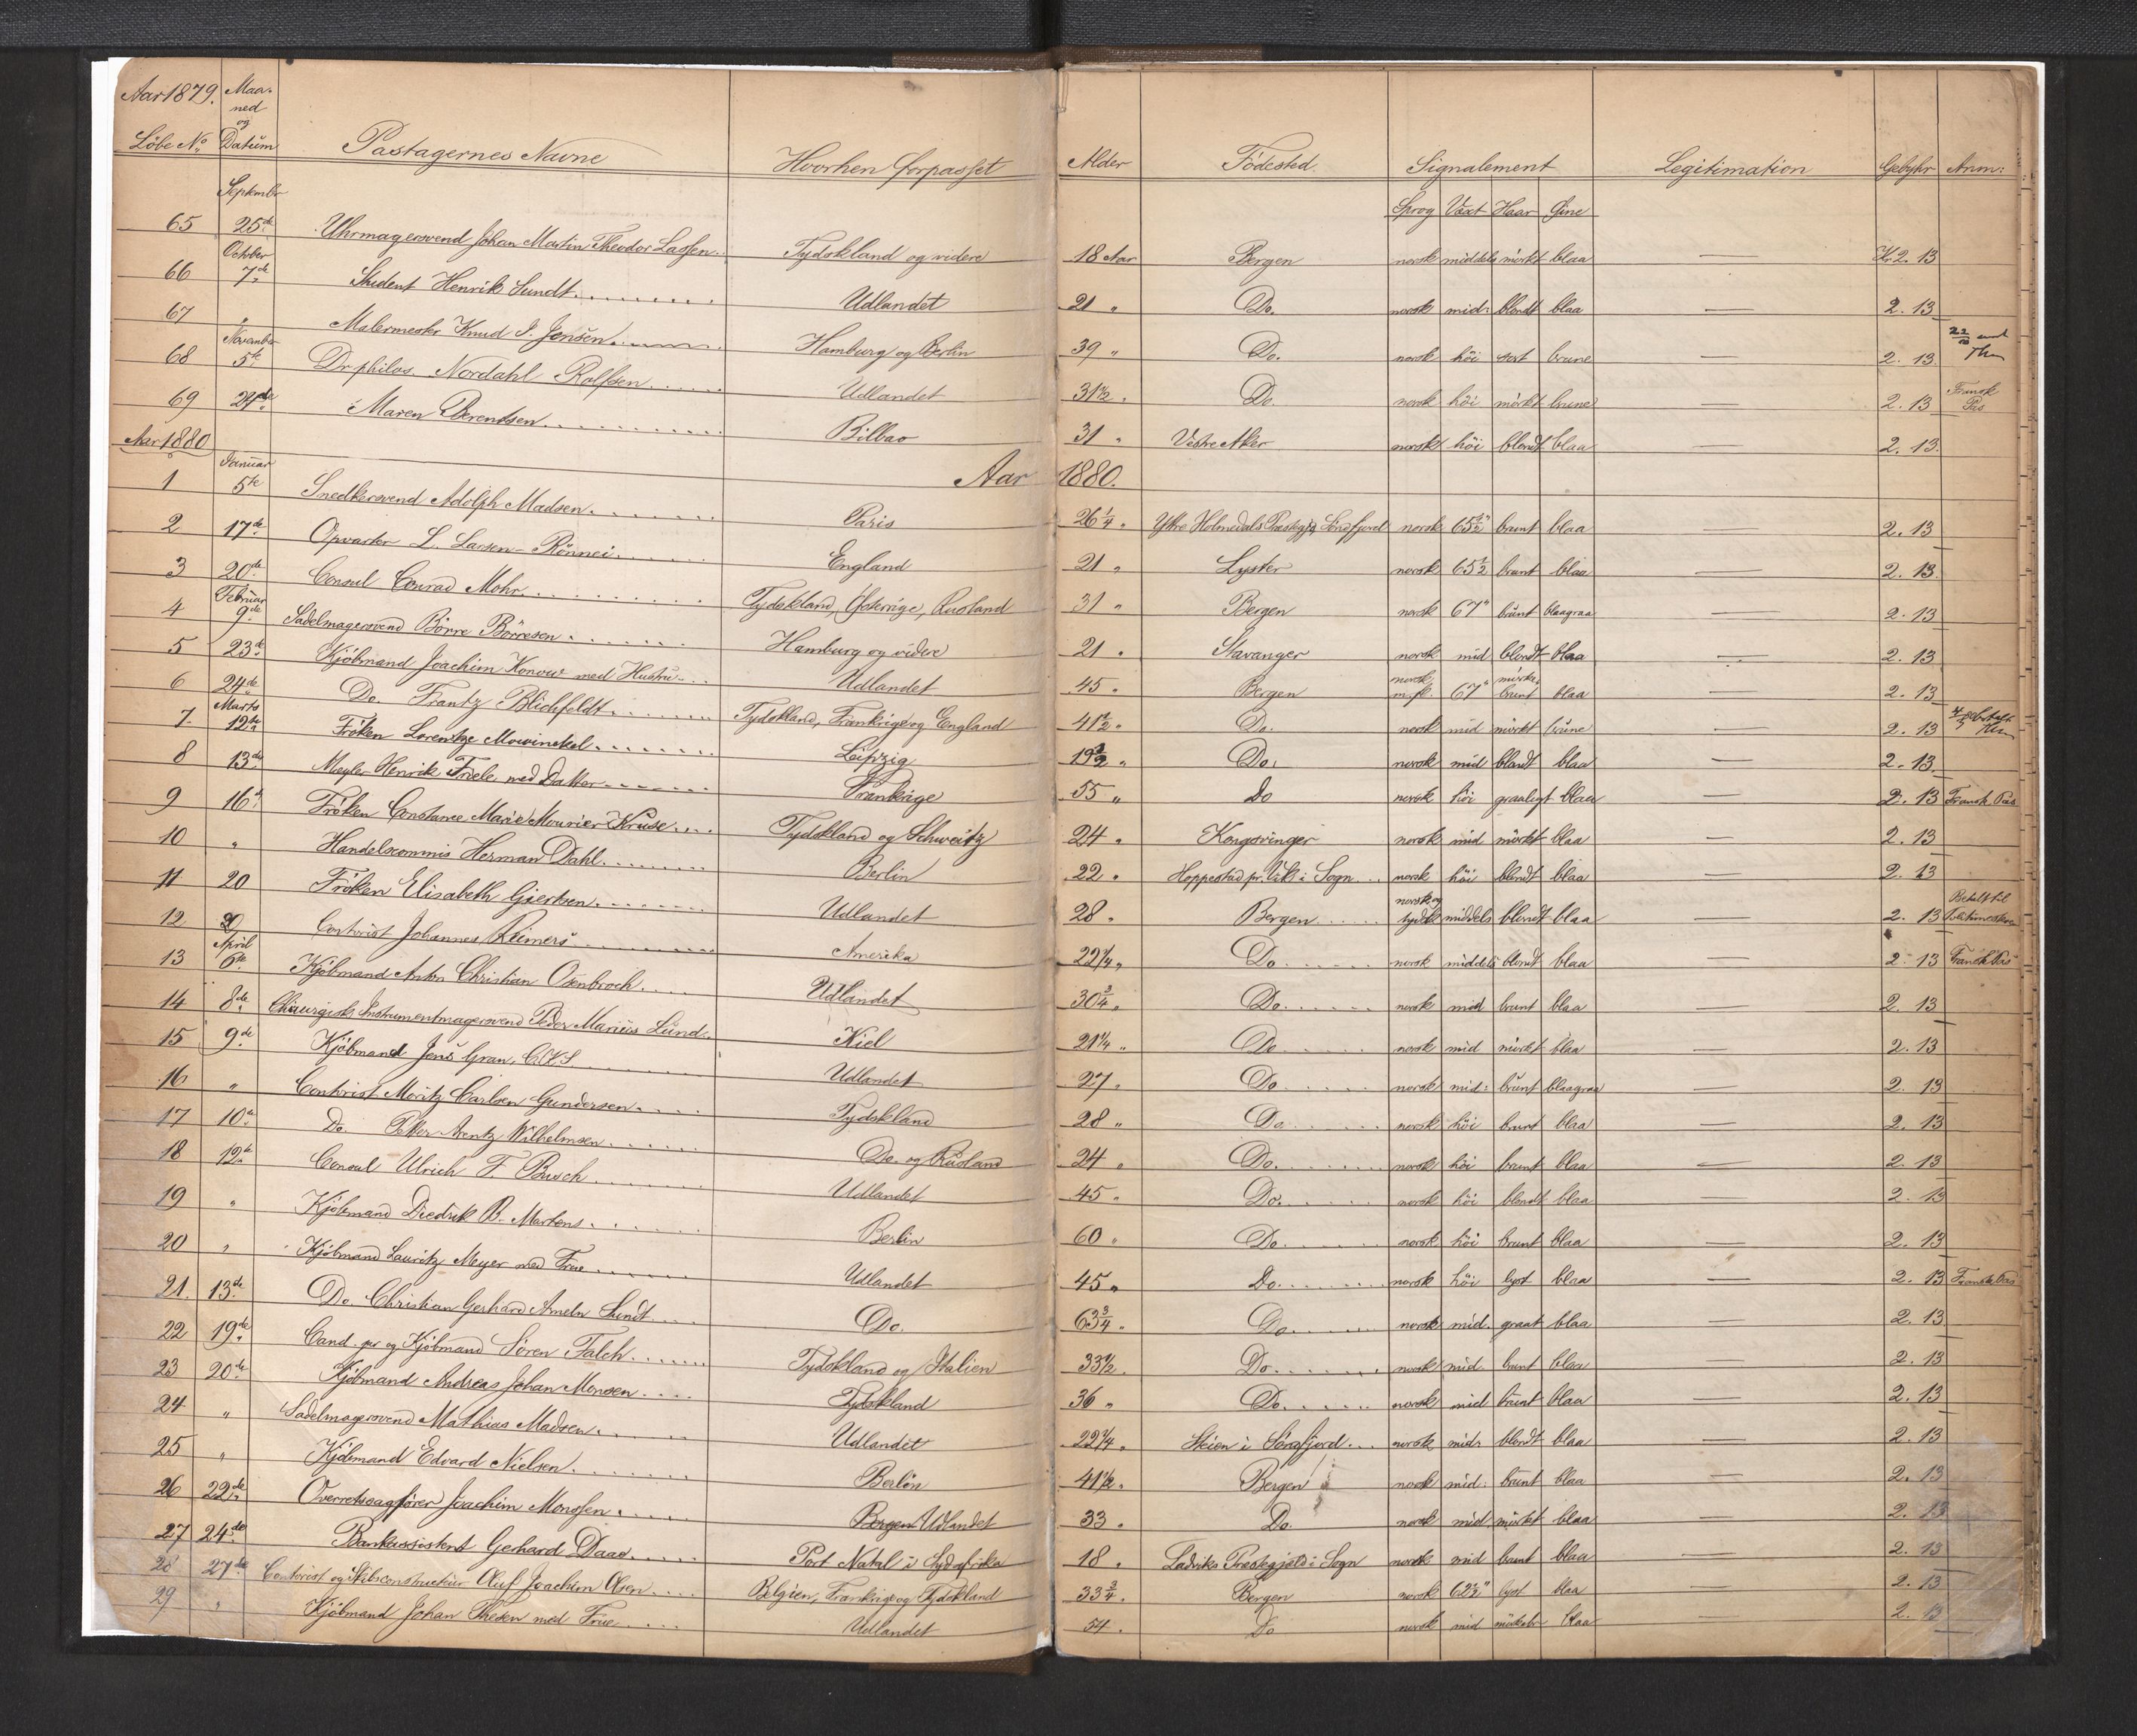 Aar 1879. Maaned og Datum
Löbe No. Pastagernes Navne Hvorhen forpasset Alder Födested Signalement Legitimation Gebyhr Anm:
Sprog Væxt Haar Öine
September
65 25de Uhrmagersvend Johan Martin Theodor Lassen Tydskland og videre 18 Aar Bergen norsk middels mörkt blaa — Kr. 2. 13
October
66 7de Student Henrik Sundt Udlandet 21 " Do. norsk mid: blondt blaa — 2. 13
67 " Malermester Knud J. Jensen Hamburg og Berlin 39 " Do. norsk höi sort brune — 2. 13
November
68 5te Dr philos. Nordahl Rolfsen Udlandet 31 1/2 " Do. norsk höi mörkt brune — 2. 13 Fransk Pas
69 24de Maren Berentsen Bilbao 31 " Vestre Aker norsk höi blondt blaa — 2. 13.
Aar 1880 Aar 1880.
Januar
1 5te Snedkersvend Adolph Madsen Paris 26 1/4 " Ytre Holmedals Præstegj. Söndfjord norsk 65 1/2" brunt blaa — 2. 13
2 17de Opvarter L. Larsen-Rönnei England 21 " Lyster norsk 65 1/2 brunt blaa — 2. 13.
3 20de Consul Conrad Mohr Tydskland, Österrige, Rusland 31 " Bergen norsk 67" brunt blaagraa — 2. 13
Februar
4 9de Sadelmagersvend Börre Börresen Hamburg og videre 21 " Stavanger norsk mid blondt blaa — 2. 13
5 23de Kjöbmand Joachim Konow med Hustru Udlandet 45 " Bergen norsk m. fl. 67" mörke brunt blaa — 2. 13
6 24de Do. Frantz Blichfeldt Tydskland, Frankrige og England 41 1/2 " Do. norsk mid mörkt brüne — 2. 13
Marts
7. 12te Fröken Lorentze Mowinckel Leipzig 19 1/2 " Do. norsk mid blondt blaa — 2. 13.
8 13de Mægler Henrik Friele med Datter Frankrige 55 " Do norsk höi graaligt blaa — 2. 13 Fransk Pas
9 16de Fröken Constance Marie Mourier Kruse Tydskland og Schweitz 24 " Kongsvinger norsk mid mörkt blaa — 2. 13
10 " Handelscommis Herman Dahl Berlin 22 " Hoppestad pr. Vik i Sogn norsk höi blondt blaa — 2. 13
11 20 Fröken Elisabeth Giertsen Udlandet 28 " Bergen norsk og tydsk middels blondt blaa — 2. 13
12 Contorist Johannes Reimers Amerika 22 1/4 " Do. norsk middels blondt blaa — 2. 13 Fransk Pas
April
13 6te Kjöbmand Anton Christian Osenbroch Udlandet 30 3/4 " Do. norsk mid brunt blaa — 2. 13
14 8de Chirurgisk Instrumentmagersvend Peder Marius Lund Kiel 21 1/4 " Do norsk mid mörkt blaa — 2. 13
15 9de Kjöbmand Jens Gran, C.K.S. Udlandet 27 " Do norsk mid: brunt blaagraa — 2. 13
16 " Contorist Moritz Carlsen Gundersen Tydskland 28 " Do norsk höi brunt blaa — 2. 13
17 10de Do. Petter Arentz Wilhelmsen Do. og Rusland 24 " Do. norsk höi brunt blaa — 2. 13
18 12te Consul Ulrich F. Busch Udlandet 45 " Do. norsk höi blondt blaa — 2. 13
19 " Kjöbmand Diedrik B. Martens Berlin 60 " Do. norsk höi brunt blaa — 2. 13
20 " Kjöbmand Lauritz Meyer med Frue Udlandet 45 " Do. norsk höi lyst blaa — 2. 13 Fransk Pas
21. 13de Do. Christian Gerhard Ameln Sundt Do. 63 3/4 " Do. norsk mid. graat blaa — 2. 13
22 19de Cand. og Kjöbmand Sören Falch Tydskland og Italien 33 1/2 Do. norsk mid. brunt blaa — 2. 13
23 20de Kjöbmand Andreas Johan Monsen Tydskland 36 " Do. norsk mid brunt blaa — 2. 13
24 " Sadelmagersvend Mathias Madsen Udlandet 22 3/4 " Skien i norsk mid: blondt blaa — 2. 13
25 " Kjöbmand Edvard Nielsen Berlin 41 1/2 " Bergen norsk mid: brunt blaa — 2. 13
26 22de Overretssagförer Joachim Monssen Bergen Udlandet 33 " Do. norsk mid mörkt blaa — 2. 13
27 24de Bankassistent Gerhard Daae Port Natal i Sydafrika 18 " Ladviks Præstegjæld i Sogn norsk mid brunt blaa — 2. 13
28 27de Contorist og Skibsconstructeur Oluf Joachim Olsen Belgien, Frankrige og Tydskland 33 3/4 " Bergen norsk 62 1/2" lyst blaa — 2. 13
29 " Kjöbmand Johan Thesen med Frue Udlandet 54 " Do norsk mid mörkebr blaa — 2. 13